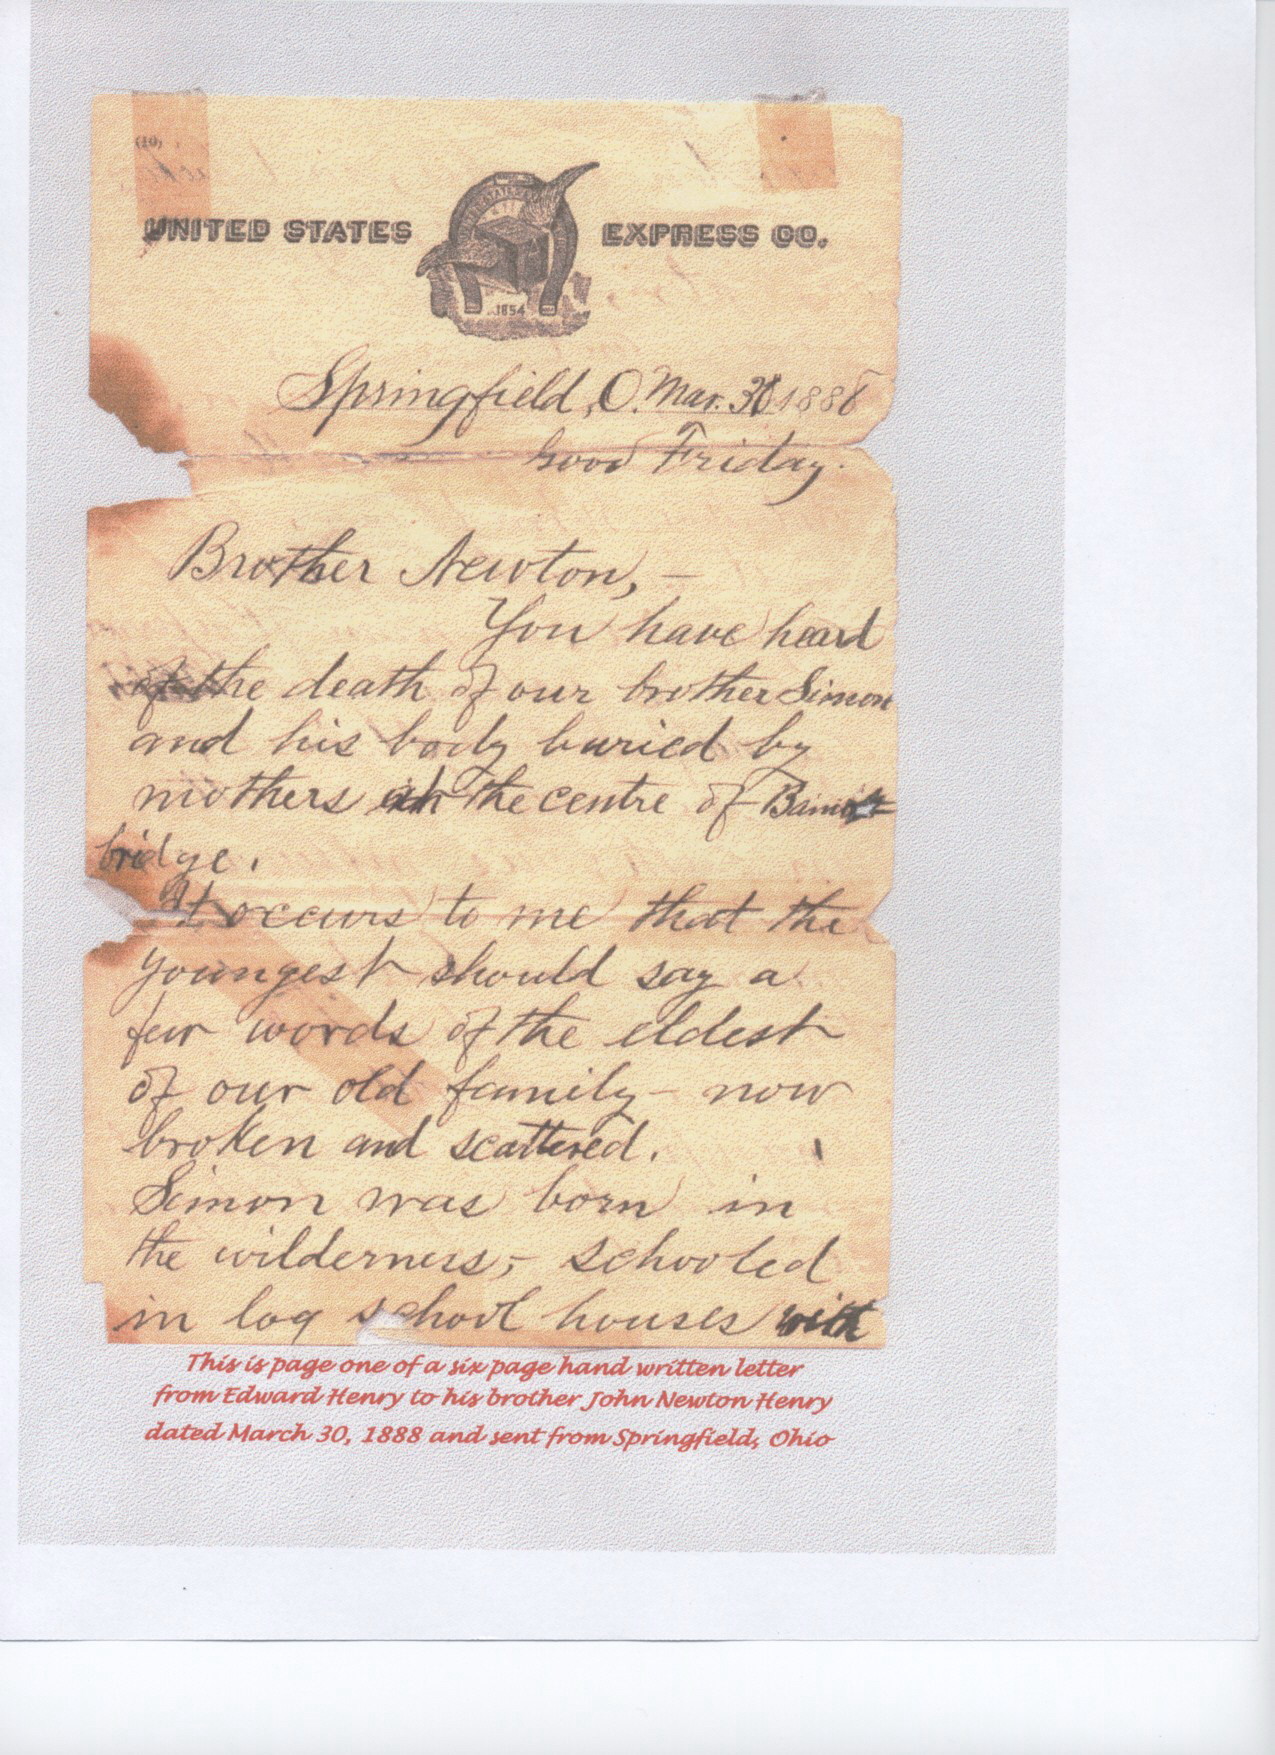 (10)
UNITED STATES EXPRESS CO.
1854
Springfield, O. Mar. 30 1888
Good Friday.
Brother Newton, –
You have heard
of the death of our brother Simon
and his body buried by
mothers at the centre of Bain-
bridge.
It occurs to me that the
youngest should say a
few words of the eldest
of our old family – now
broken and scattered.
Simon was born in
the wilderness, – schooled
in log school houses with
This is page one of a six page hand written letter
from Edward Henry to his brother John Newton Henry
dated March 30, 1888 and sent from Springfield, Ohio